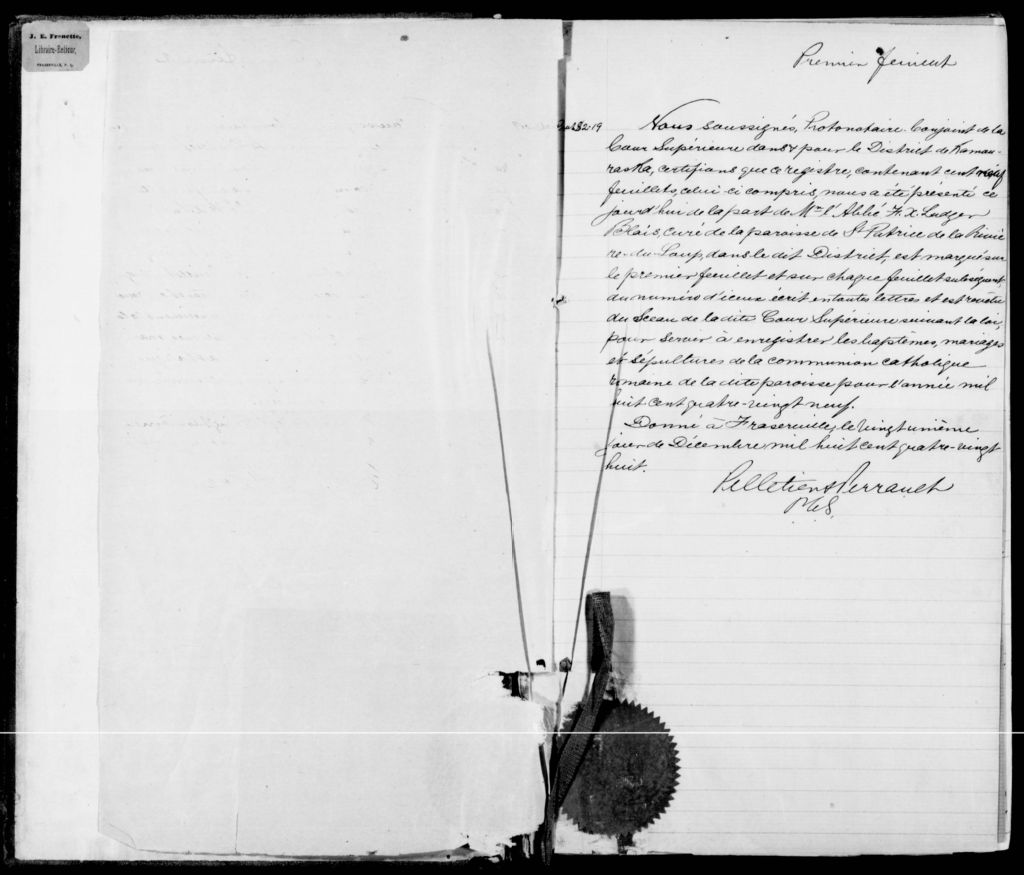 J. E. Frenette,
Libraire-Relieur,
FRASERVILLE, P. Q.
Premier feuillet
Nous soussignés, Protonotaire-Conjoint de la
Cour Supérieure dans & pour le District de Kamou-
raska, certifions que ce registre, contenant cent
feuillets, celui-ci compris, nous a été présenté ce
jourd'hui de la part de Mr l'Abbé F. X. Ludger
Blais, curé de la paroisse de St Patrice de la Riviè
re-du-Loup, dans le dit District, est marqué sur
le premier feuillet et sur chaque feuillet subséquent
du numéro d'iceux écrit en toutes lettres et est revêtu
du Sceau de la dite Cour Supérieure suivant la loi,
pour servir à enregistrer les baptêmes, mariages
et sépultures de la communion catholique
romaine de la dite paroisse pour l'année mil
huit cent quatre-vingt neuf.
Donné à Fraserville, le vingt unième
jour de Décembre mil huit cent quatre-vingt
huit.
Pelletier & Perrault
P.C.S.